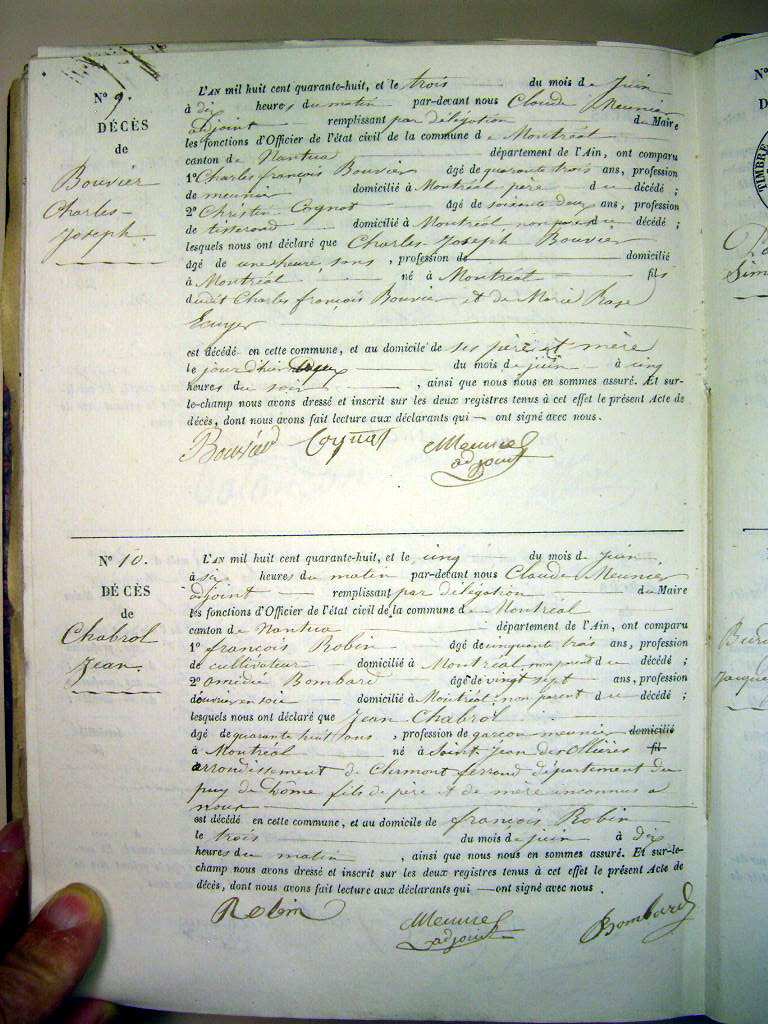 N° 9.
DÉCÈS
de
Bouvier
Charles-
Joseph.
L'AN mil huit cent quarante-huit, et le trois du mois de Juin
à dix heures du matin par-devant nous Claude Meunier
adjoint remplissant par délégation du Maire
les fonctions d'Officier de l'état civil de la commune de Montréal
canton de Nantua département de l'Ain, ont comparu
1° Charles françois Bouvier âgé de quarante trois ans, profession
de meunier domicilié à Montréal père du décédé ;
2° Christin Cognat âgé de soixante deux ans, profession
de tisserand domicilié à Montréal non parent du décédé ;
lesquels nous ont déclaré que Charles Joseph Bouvier
âgé de une heure, sans , profession de domicilié
à Montréal né à Montréal fils
dudit Charles françois Bouvier et de Marie Rose
Ecuyer
est décédé en cette commune, et au domicile de ses père et mère
le jour d'hier deux du mois de juin à cinq
heures du soir , ainsi que nous nous en sommes assuré. Et sur-
le-champ nous avons dressé et inscrit sur les deux registres tenus à cet effet le présent Acte de
décès, dont nous avons fait lecture aux déclarants qui ont signé avec nous.
Bouvier Cognat Meunier
adjoint
N° 10.
DÉCÈS
de
Chabrol
Jean.
L'AN mil huit cent quarante-huit, et le cinq du mois de Juin
à six heures du matin par-devant nous Claude Meunier
adjoint remplissant par délégation du Maire
les fonctions d'Officier de l'état civil de la commune de Montréal
canton de Nantua département de l'Ain, ont comparu
1° françois Robin âgé de cinquante trois ans, profession
de cultivateur domicilié à Montréal, non parent du décédé ;
2° Amédée Bombard âgé de vingt sept ans, profession
d'ouvrier en soie domicilié à Montréal, non parent du décédé ;
lesquels nous ont déclaré que Jean Chabrol
âgé de quarante huit ans , profession de garçon meunier domicilié
à Montréal né à Saint Jean des Ollières fil
arrondissement de Clermont ferrand département du
puy de Dôme fils de père et de mère inconnus à
nous
est décédé en cette commune, et au domicile de françois Robin
le trois du mois de juin à dix
heures du matin , ainsi que nous nous en sommes assuré. Et sur-le-
champ nous avons dressé et inscrit sur les deux registres tenus à cet effet le présent Acte de
décès, dont nous avons fait lecture aux déclarants qui ont signé avec nous.
Robin Meunier Bombard
adjoint
TIMBRE